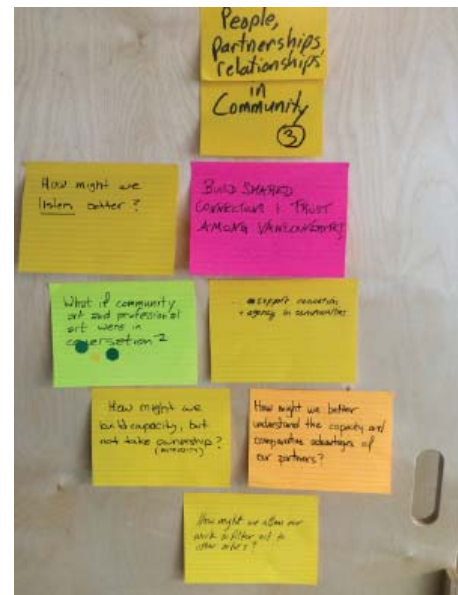 People,
Partnerships,
relationships,
in
Community
3
How might we
listen better?
BUILD SHARED
CONNECTIONS & TRUST
AMONG VANCOUVERITES
What if community
art and professional
art were in
conversation?
support connection
+ agency in communities
How might we
build capacity, but
not take ownership?
How might we better
understand the capacity and
comparative advantages of
our partners?
How might we allow our
work to filter out to
other